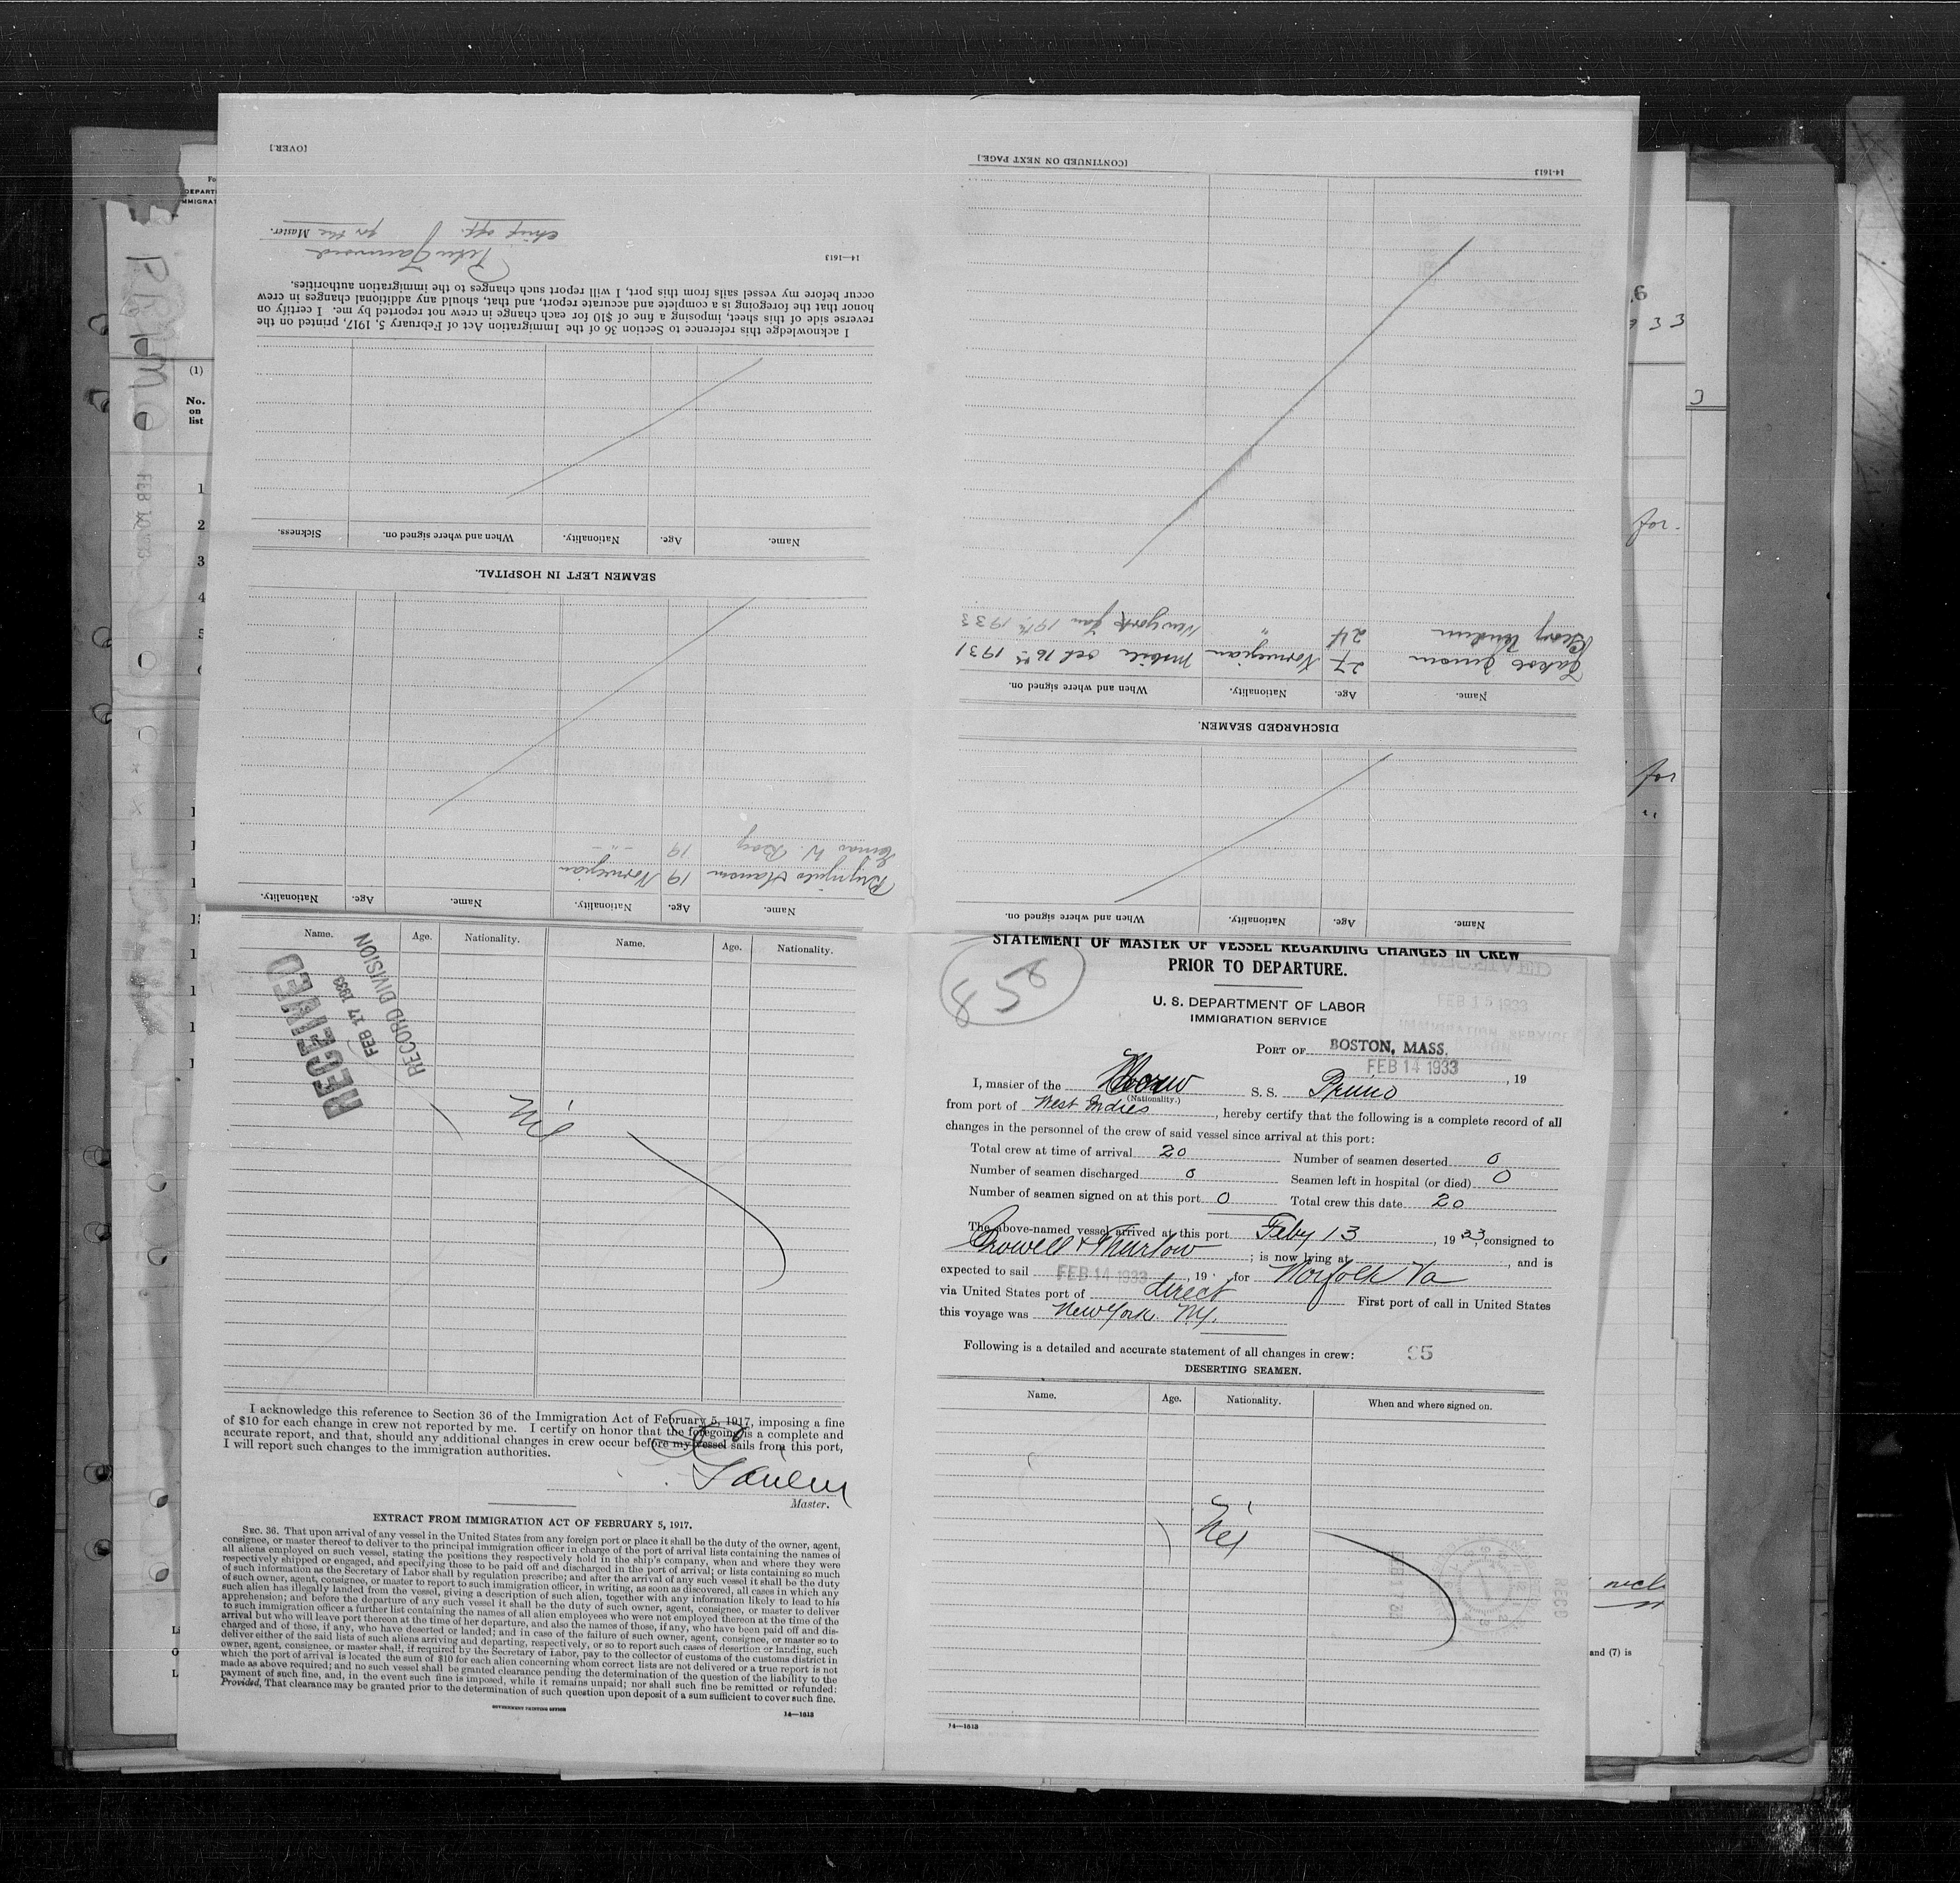 [OVER.]
Master.
for the
chief off.
14—1613
I acknowledge this reference to Section 36 of the Immigration Act of February 5, 1917, printed on the
reverse side of this sheet, imposing a fine of $10 for each change in crew not reported by me. I certify on
honor that the foregoing is a complete and accurate report, and that, should any additional changes in crew
occur before my vessel sails from this port, I will report such changes to the immigration authorities.
Name. Age. Nationality. When and where signed on. Sickness.
SEAMEN LEFT IN HOSPITAL.
Hansen 19 Norwegian
19 - " -
Name. Age. Nationality. Name. Age. Nationality.
[CONTINUED ON NEXT PAGE.]
14-1613
24 " New York Jan 19th 1933
Jakob 27 Norwegian Mobile Oct 16th 1931
Name. Age. Nationality. When and where signed on.
DISCHARGED SEAMEN.
Name. Age. Nationality. When and where signed on.
Name. Age. Nationality. Name. Age. Nationality.
RECEIVED
FEB 17 1933
RECORD DIVISION
Nil
I acknowledge this reference to Section 36 of the Immigration Act of February 5, 1917, imposing a fine
of $10 for each change in crew not reported by me. I certify on honor that the foregoing is a complete and
accurate report, and that, should any additional changes in crew occur before my vessel sails from this port,
I will report such changes to the immigration authorities.
Master.
EXTRACT FROM IMMIGRATION ACT OF FEBRUARY 5, 1917.
SEC. 36. That upon arrival of any vessel in the United States from any foreign port or place it shall be the duty of the owner, agent,
consignee, or master thereof to deliver to the principal immigration officer in charge of the port of arrival lists containing the names of
all aliens employed on such vessel, stating the positions they respectively hold in the ship's company, when and where they were
respectively shipped or engaged, and specifying those to be paid off and discharged in the port of arrival; or lists containing so much
of such information as the Secretary of Labor shall by regulation prescribe; and after the arrival of any such vessel it shall be the duty
of such owner, agent, consignee, or master to report to such immigration officer, in writing, as soon as discovered, all cases in which any
such alien has illegally landed from the vessel, giving a description of such alien, together with any information likely to lead to his
apprehension; and before the departure of any such vessel it shall be the duty of such owner, agent, consignee, or master to deliver
to such immigration officer a further list containing the names of all alien employees who were not employed thereon at the time of the
arrival but who will leave port thereon at the time of her departure, and also the names of those, if any, who have been paid off and dis-
charged and of those, if any, who have deserted or landed; and in case of the failure of such owner, agent, consignee, or master so to
deliver either of the said lists of such aliens arriving and departing, respectively, or so to report such cases of desertion or landing, such
owner, agent, consignee, or master shall, if required by the Secretary of Labor, pay to the collector of customs of the customs district in
which the port of arrival is located the sum of $10 for each alien concerning whom correct lists are not delivered or a true report is not
made as above required; and no such vessel shall be granted clearance pending the determination of the question of the liability to the
payment of such fine, and, in the event such fine is imposed, while it remains unpaid; nor shall such fine be remitted or refunded:
Provided, That clearance may be granted prior to the determination of such question upon deposit of a sum sufficient to cover such fine.
GOVERNMENT PRINTING OFFICE
14—1613
858
STATEMENT OF MASTER OF VESSEL REGARDING CHANGES IN CREW
PRIOR TO DEPARTURE.
RECEIVED
FEB 15 1933
IMMIGRATION SERVICE
U. S. DEPARTMENT OF LABOR
IMMIGRATION SERVICE
PORT OF BOSTON, MASS.
FEB 14 1933, 19
I, master of the S. S. Primo
(Nationality.)
from port of West Indies, hereby certify that the following is a complete record of all
changes in the personnel of the crew of said vessel since arrival at this port:
Total crew at time of arrival 20 Number of seamen deserted 0
Number of seamen discharged 0 Seamen left in hospital (or died) 0
Number of seamen signed on at this port 0 Total crew this date 20
The above-named vessel arrived at this port Feby 13, 1933, consigned to
Crowell & Thurlow; is now lying at , and is
expected to sail FEB 14 1933, 19 for Norfolk Va
via United States port of direct First port of call in United States
this voyage was New York. N.Y.
Following is a detailed and accurate statement of all changes in crew: 95
DESERTING SEAMEN.
Name. Age. Nationality. When and where signed on.
Nil
REC'D
14—1613
PRIMO
(1)
No.
on
list
1
2
3
4
5
for
and (7) is